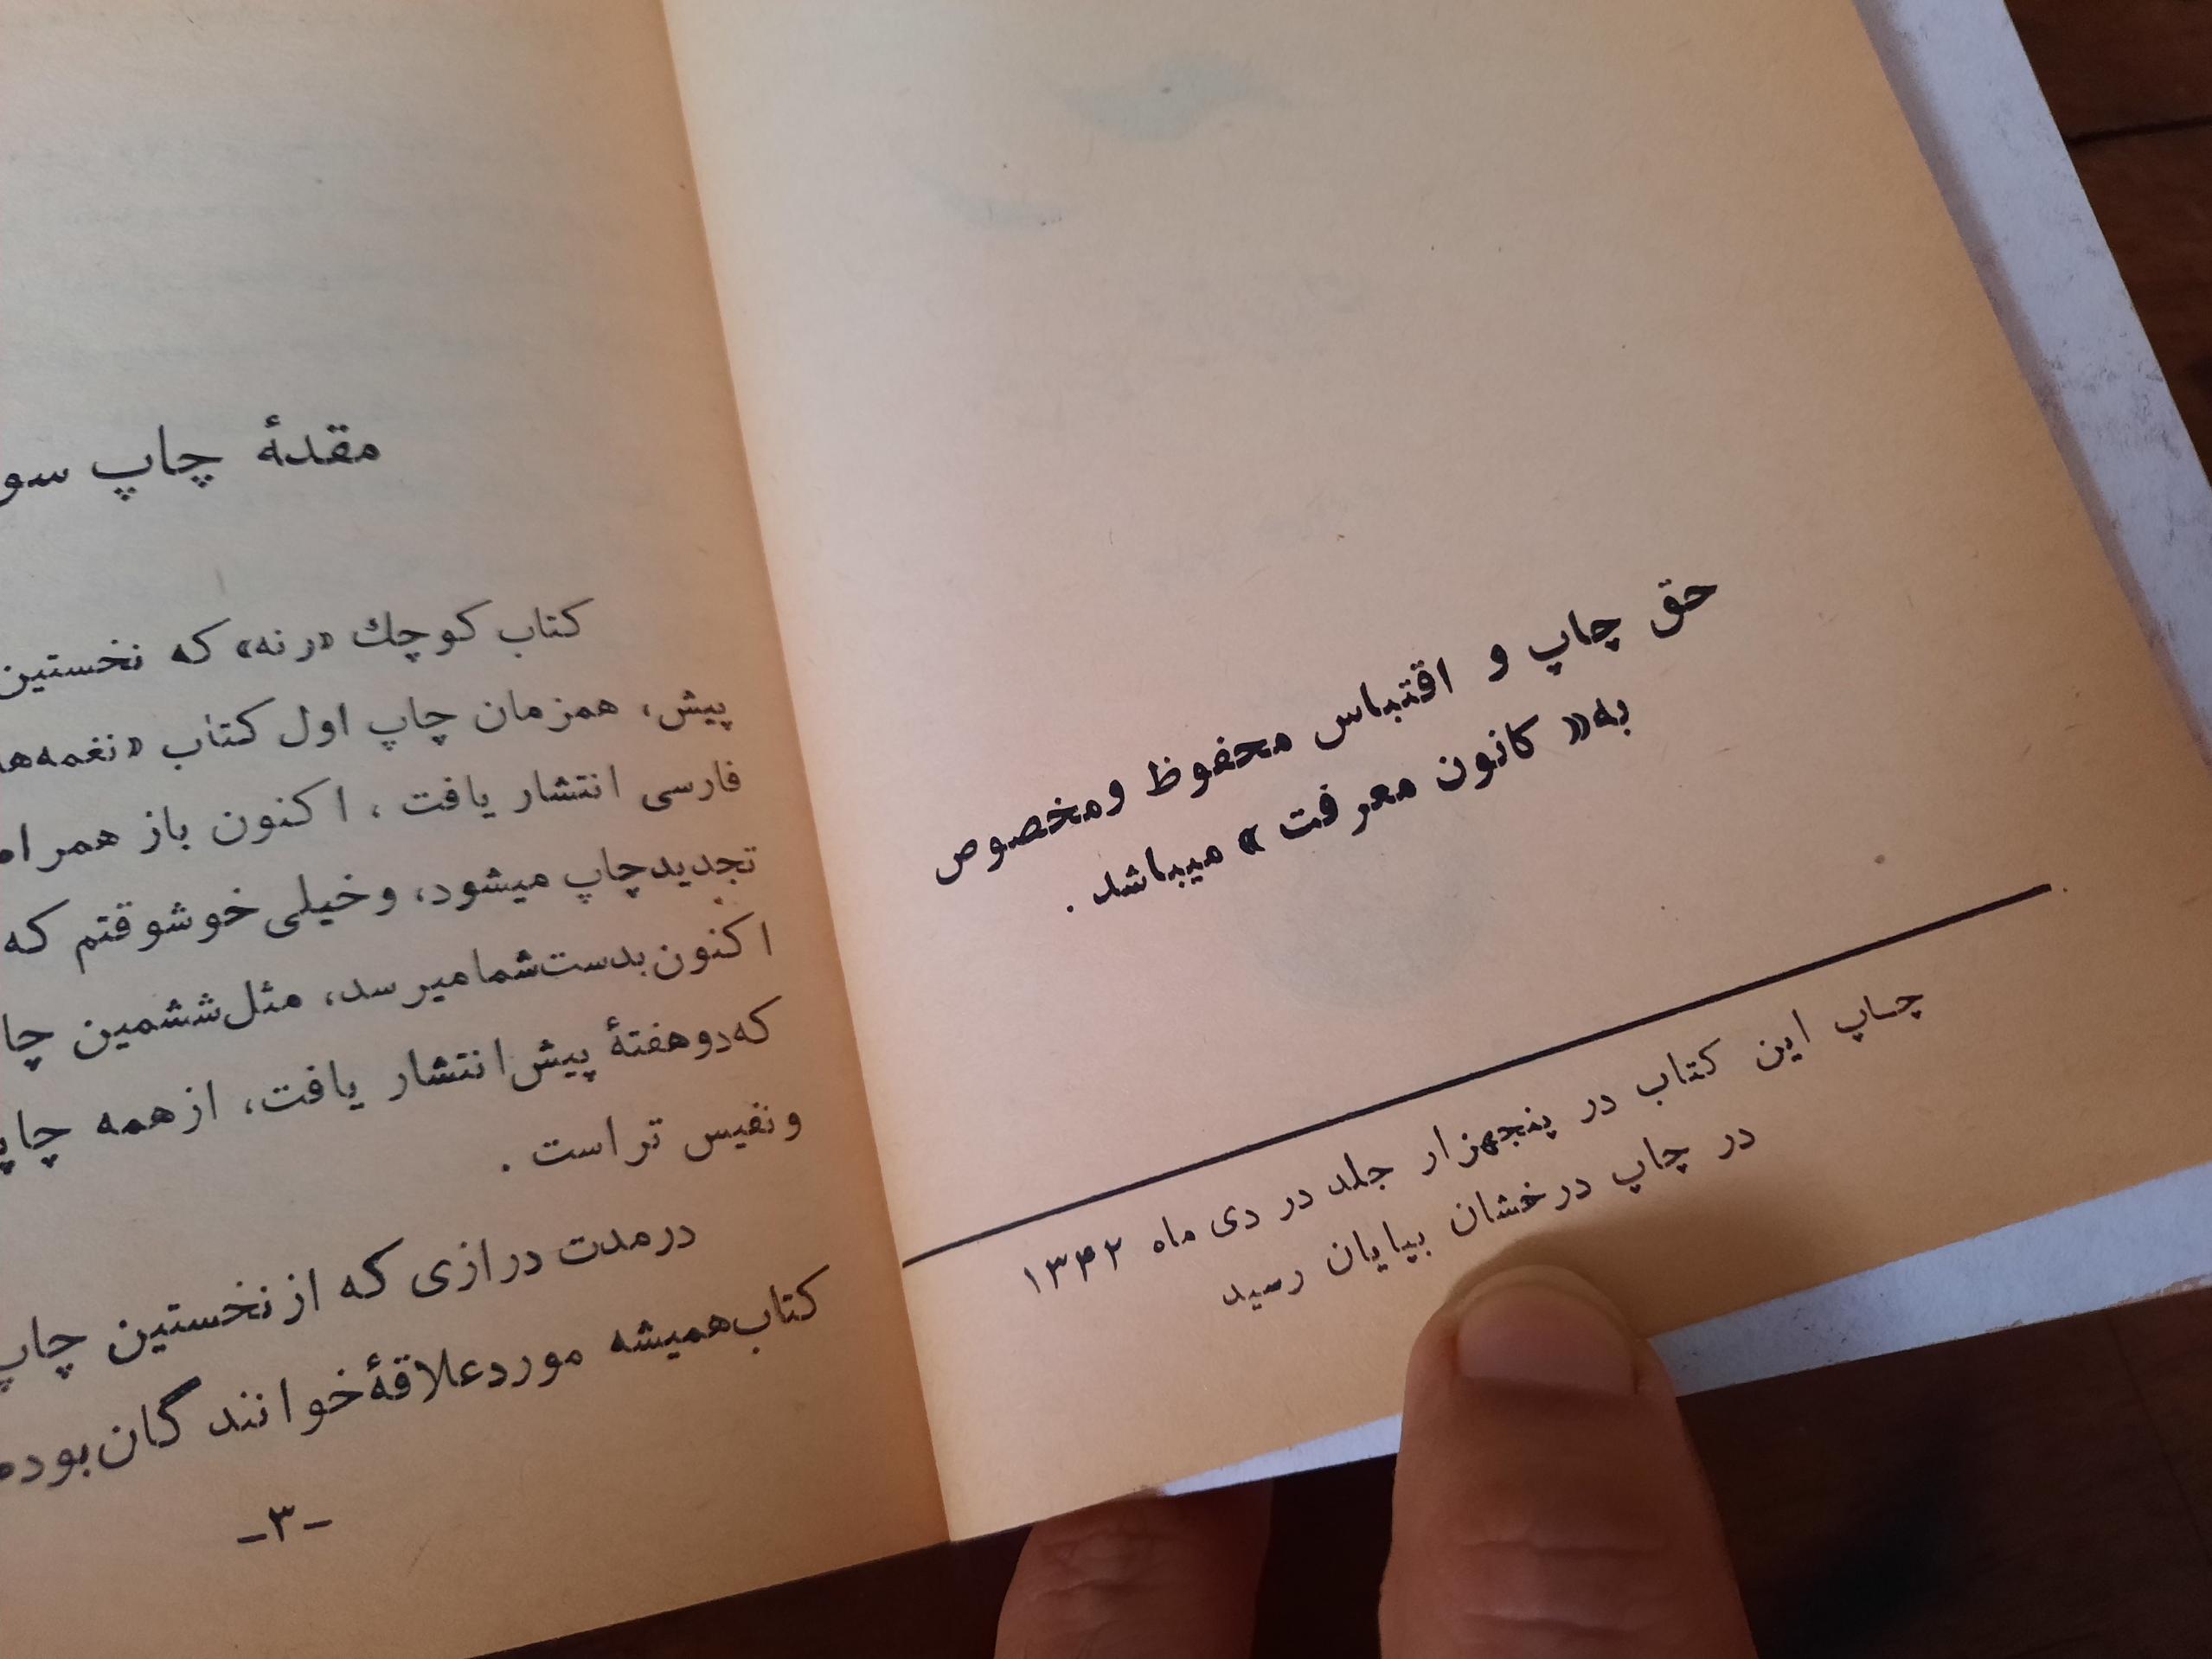 حق چاپ و اقتباس محفوظ ومخصوص
به« کانون معرفت » میباشد .
چاپ این کتاب در پنجهزار جلد در دی ماه ۱۳۴۲
در چاپ درخشان بپایان رسید
مقدهٔ چاپ سو
کتاب کوچك «رنه» که نخستین
پیش، همزمان چاپ اول کتاب «نغمه‌ها
فارسی انتشار یافت ، اکنون باز همراه
تجدیدچاپ میشود، وخیلی خوشوقتم که
اکنون‌بدست‌شمامیرسد، مثل‌ششمین چا
که‌دوهفتهٔ پیش‌انتشار یافت، ازهمه چاپ
ونفیس تراست .
درمدت درازی که ازنخستین چاپ
کتاب‌همیشه موردعلاقهٔ‌خوانندگان‌بوده
-۳-